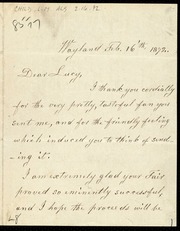 Wayland Feb. 16th 1872.
Dear Lucy,
I thank you cordially
for the very pretty, tasteful fan you
sent me, and for the friendly feeling
which induced you to think of send-
ing it.
I am extremely glad your Fair
proved so eminently successful,
and I hope the proceeds will be